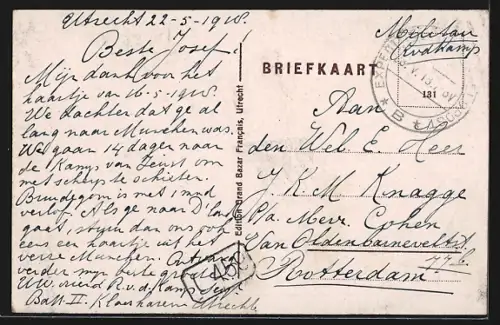 Utrecht 22-5-1918.
Beste Josef!
Mijn dank voor het
kaartje van 16-5-1918.
We dachten dat ge al
lang naar Munchen was.
We gaan 14 dagen naar
de Kamp van Zeist om
met scherp te schieten.
is met 1 mnd
verlof. Als ge naar
gaat, stuur dan ons ook
eens een kaartje uit het
verre Munchen.
verder mijn beste
UW. vriend R. v. d. Kamp
Batt. II. Utrecht
Edition Grand Bazar Français, Utrecht
Militair
BRIEFKAART
181
B
Aan
den Wel E. Heer
J. K. M. Knagge
p/a Mevr. Cohen
Van Oldenbarneveltst.
77 b.
Rotterdam